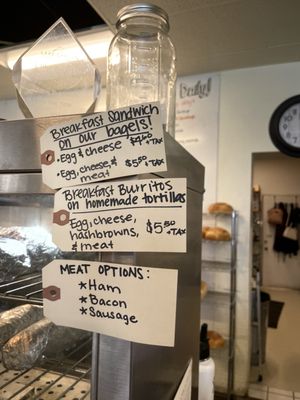 Breakfast Sandwich
on our bagels!
• Egg & cheese $4.50 + TAX
• Egg, cheese, & meat $5.50 + TAX
Breakfast Burritos
on homemade tortillas
Egg, cheese,
hashbrowns, $5.50 + TAX
& meat
MEAT OPTIONS:
* Ham
* Bacon
* Sausage